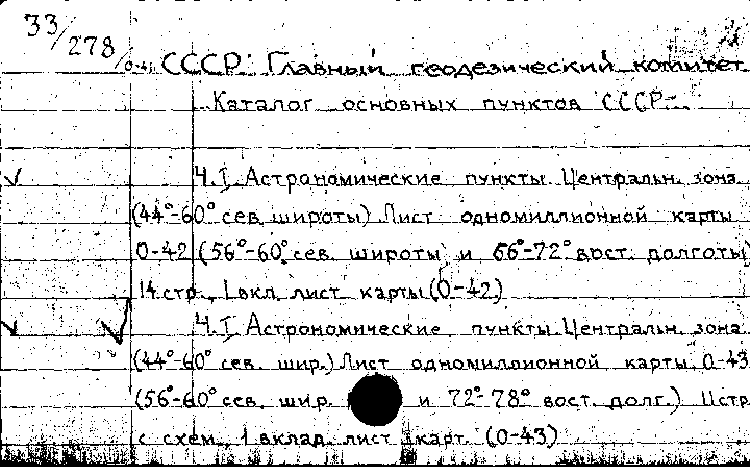 33/278/0-41 СССР. Главный геодезический комитет
Каталог основных пунктов СССР.
Ч.I. Астрономические пункты. Центральн. зона
(44°-60° сев. широты) Лист одномиллионной карты
0-42 (56°-60° сев. широты и 66°-72° вост. долготы)
14 стр., 1 вкл. лист карты (0-42)
Ч.I Астрономические пункты. Центральн. зона
(44°-60° сев. шир.) Лист одномиллионной карты 0-43
(56°-60° сев. шир. и 72°-78° вост. долг.) 11 стр
с схем, 1 вклад. лист карт. (0-43)